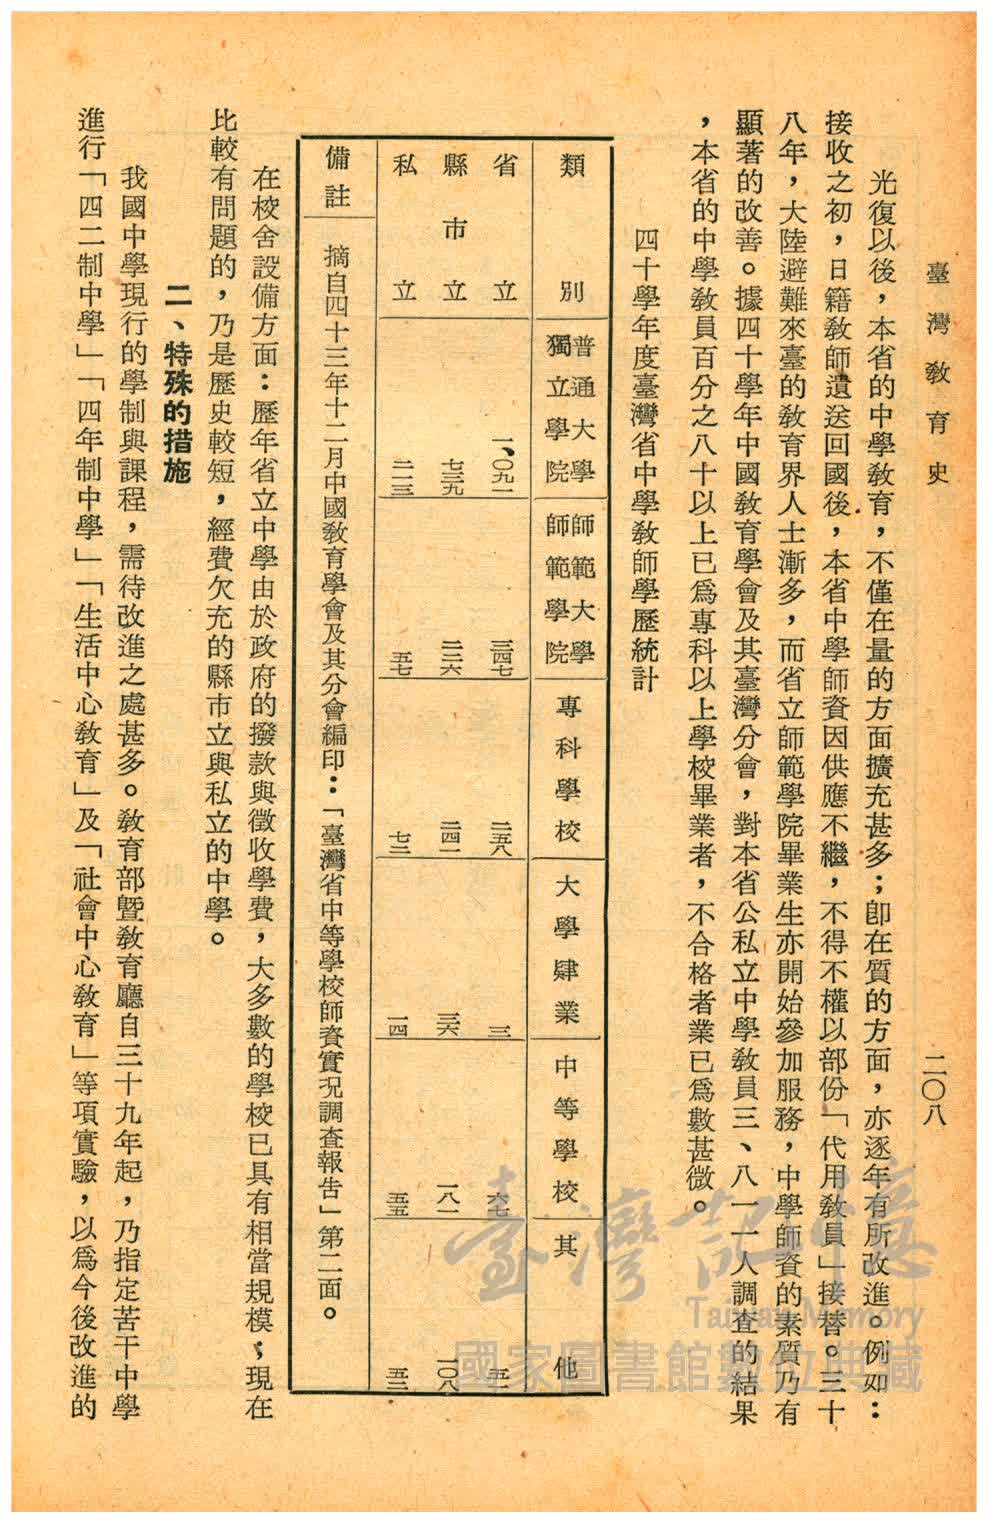 臺灣教育史
二〇八
光復以後，本省的中學教育，不僅在量的方面擴充甚多；卽在質的方面，亦逐年有所改進。例如：
接收之初，日籍教師遺送回國後，本省中學師資因供應不繼，不得不權以部份「代用教員」接替。三十
八年，大陸避難來臺的教育界人士漸多，而省立師範學院畢業生亦開始參加服務，中學師資的素質乃有
顯著的改善。據四十學年中國教育學會及其臺灣分會，對本省公私立中學教員三、八一一人調查的結果
，本省的中學教員百分之八十以上已爲專科以上學校畢業者，不合格者業已爲數甚微。
四十學年度臺灣省中學教師學歷統計
類別 普通大學獨立學院 師範大學師範學院 專科學校 大學肄業 中等學校 其他
省立 一、〇九一 三四七 二五八 三 六七 五一
縣市立 七三九 二二六 二四一 三六 一八一 一〇八
私立 二一三 五七 七二 一四 五五 五二
備註 摘自四十三年十二月中國教育學會及其分會編印：「臺灣省中等學校師資實況調查報告」第二面。
在校舍設備方面：歷年省立中學由於政府的撥款與徵收學費，大多數的學校已具有相當規模；現在
比較有問題的，乃是歷史較短，經費欠充的縣市立與私立的中學。
二、特殊的措施
我國中學現行的學制與課程，需待改進之處甚多。教育部暨教育廳自三十九年起，乃指定苦干中學
進行「四二制中學」「四年制中學」「生活中心教育」及「社會中心教育」等項實驗，以爲今後改進的
臺灣記憶
Taiwan Memory
國家圖書館數位典藏